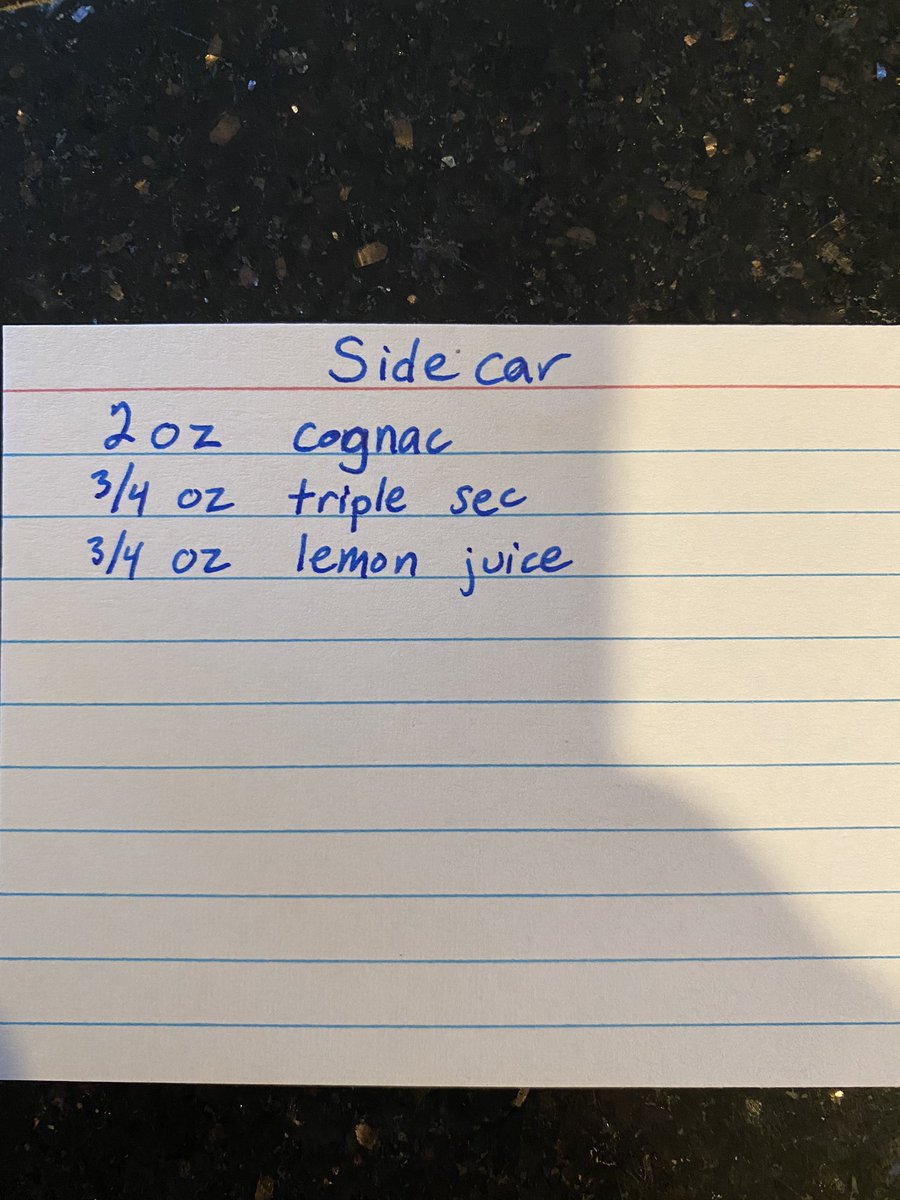 Side car
2 oz cognac
3/4 oz triple sec
3/4 oz lemon juice